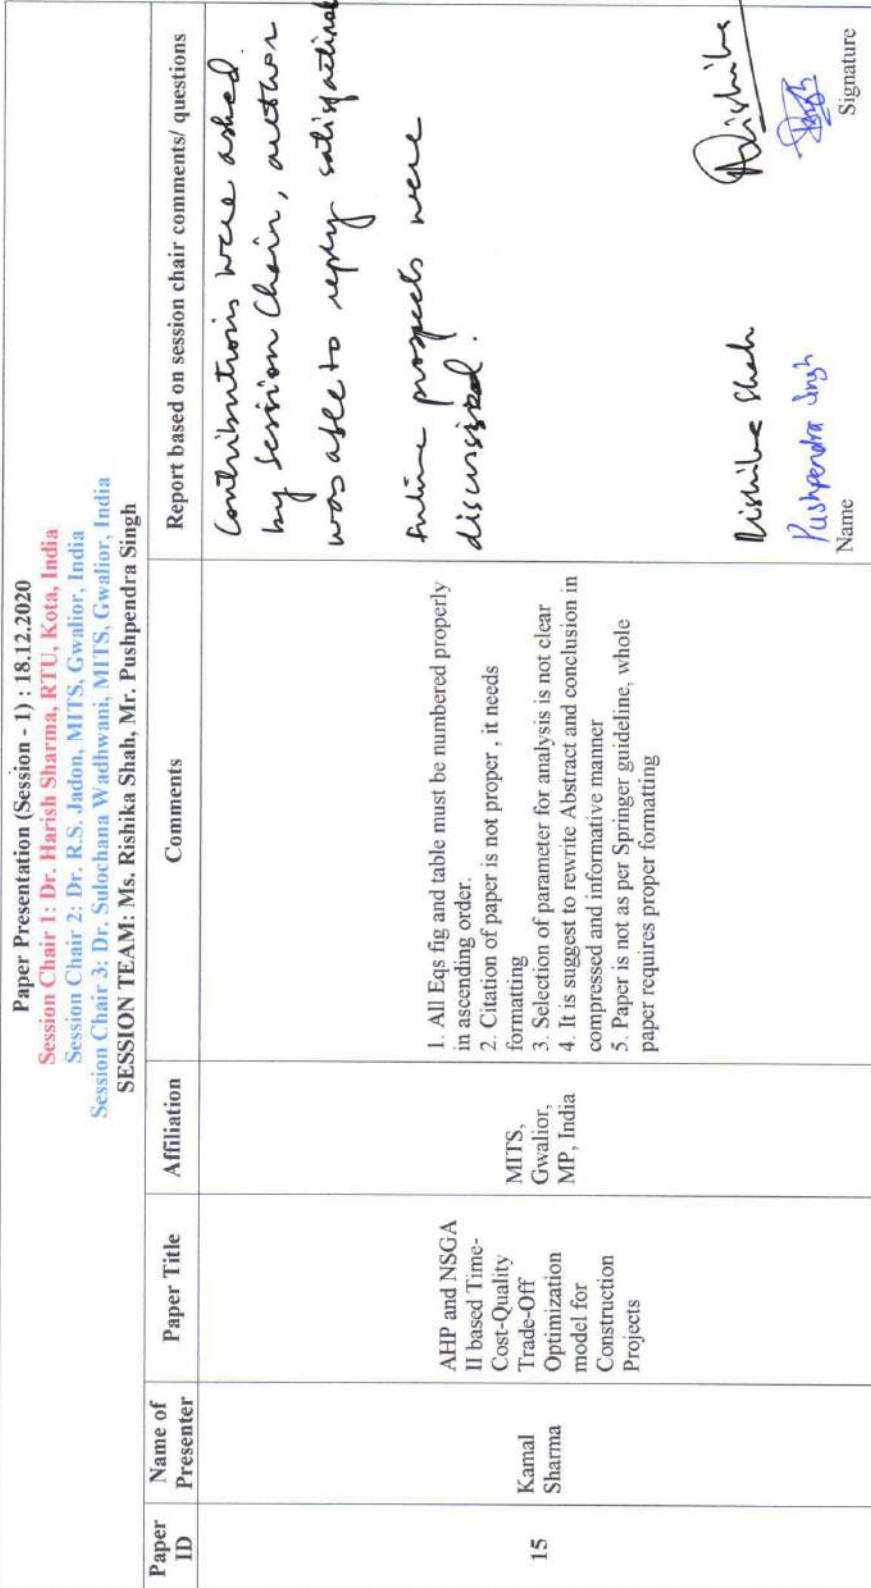 Paper Presentation (Session - 1) : 18.12.2020
Session Chair 1: Dr. Harish Sharma, RTU, Kota, India
Session Chair 2: Dr. R.S. Jadon, MITS, Gwalior, India
Session Chair 3: Dr. Sulochana Wadhwani, MITS, Gwalior, India
SESSION TEAM: Ms. Rishika Shah, Mr. Pushpendra Singh
Paper
ID
Name of
Presenter
Paper Title
Affiliation
Comments
Report based on session chair comments/ questions
15
Kamal
Sharma
AHP and NSGA
II based Time-
Cost-Quality
Trade-Off
Optimization
model for
Construction
Projects
MITS,
Gwalior,
MP, India
1. All Eqs fig and table must be numbered properly
in ascending order.
2. Citation of paper is not proper , it needs
formatting
3. Selection of parameter for analysis is not clear
4. It is suggest to rewrite Abstract and conclusion in
compressed and informative manner
5. Paper is not as per Springer guideline, whole
paper requires proper formatting
Contributions were asked
by session Chair, author
was able to reply
future prospects were
discussed.
Rishika Shah
Pushpendra Singh
Name
Signature